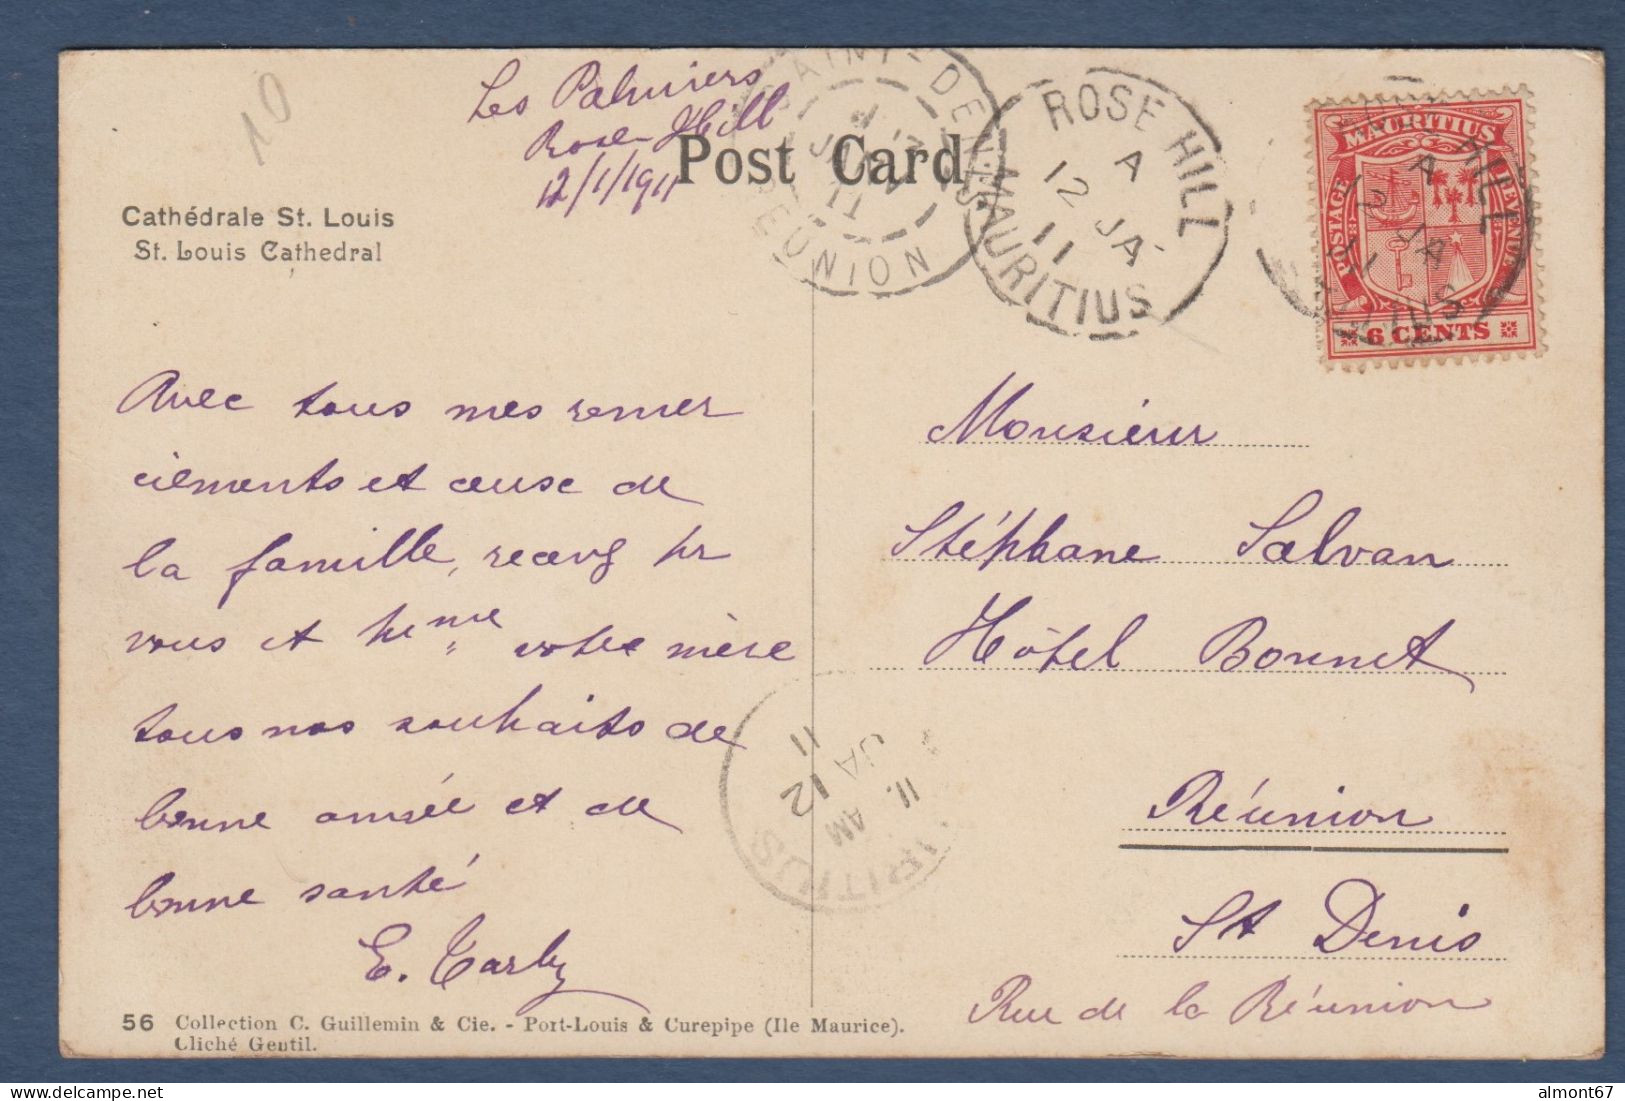 10
Les Palmiers
Rose Hill
12/1/1911
Post Card
SAINT-DENIS
REUNION
ROSE HILL
A
12 JA
11
MAURITIUS
MAURITIUS
POSTAGE
REVENUE
6 CENTS
HILL
A
12 JA
11
Cathédrale St. Louis
St. Louis Cathedral
Avec tous mes remer
ciements et ceuse de
la famille, recevez pr
vous et pr me votre mère
tous nos souhaits de
bonne année et de
bonne santé
Monsieur
Stéphane Salvan
Hôtel Bonnet
Réunion
St Denis
Rue de la Réunion
11. AM
JA 12
11
56 Collection C. Guillemin & Cie. - Port-Louis & Curepipe (Ile Maurice).
Cliché Gentil.
almont67